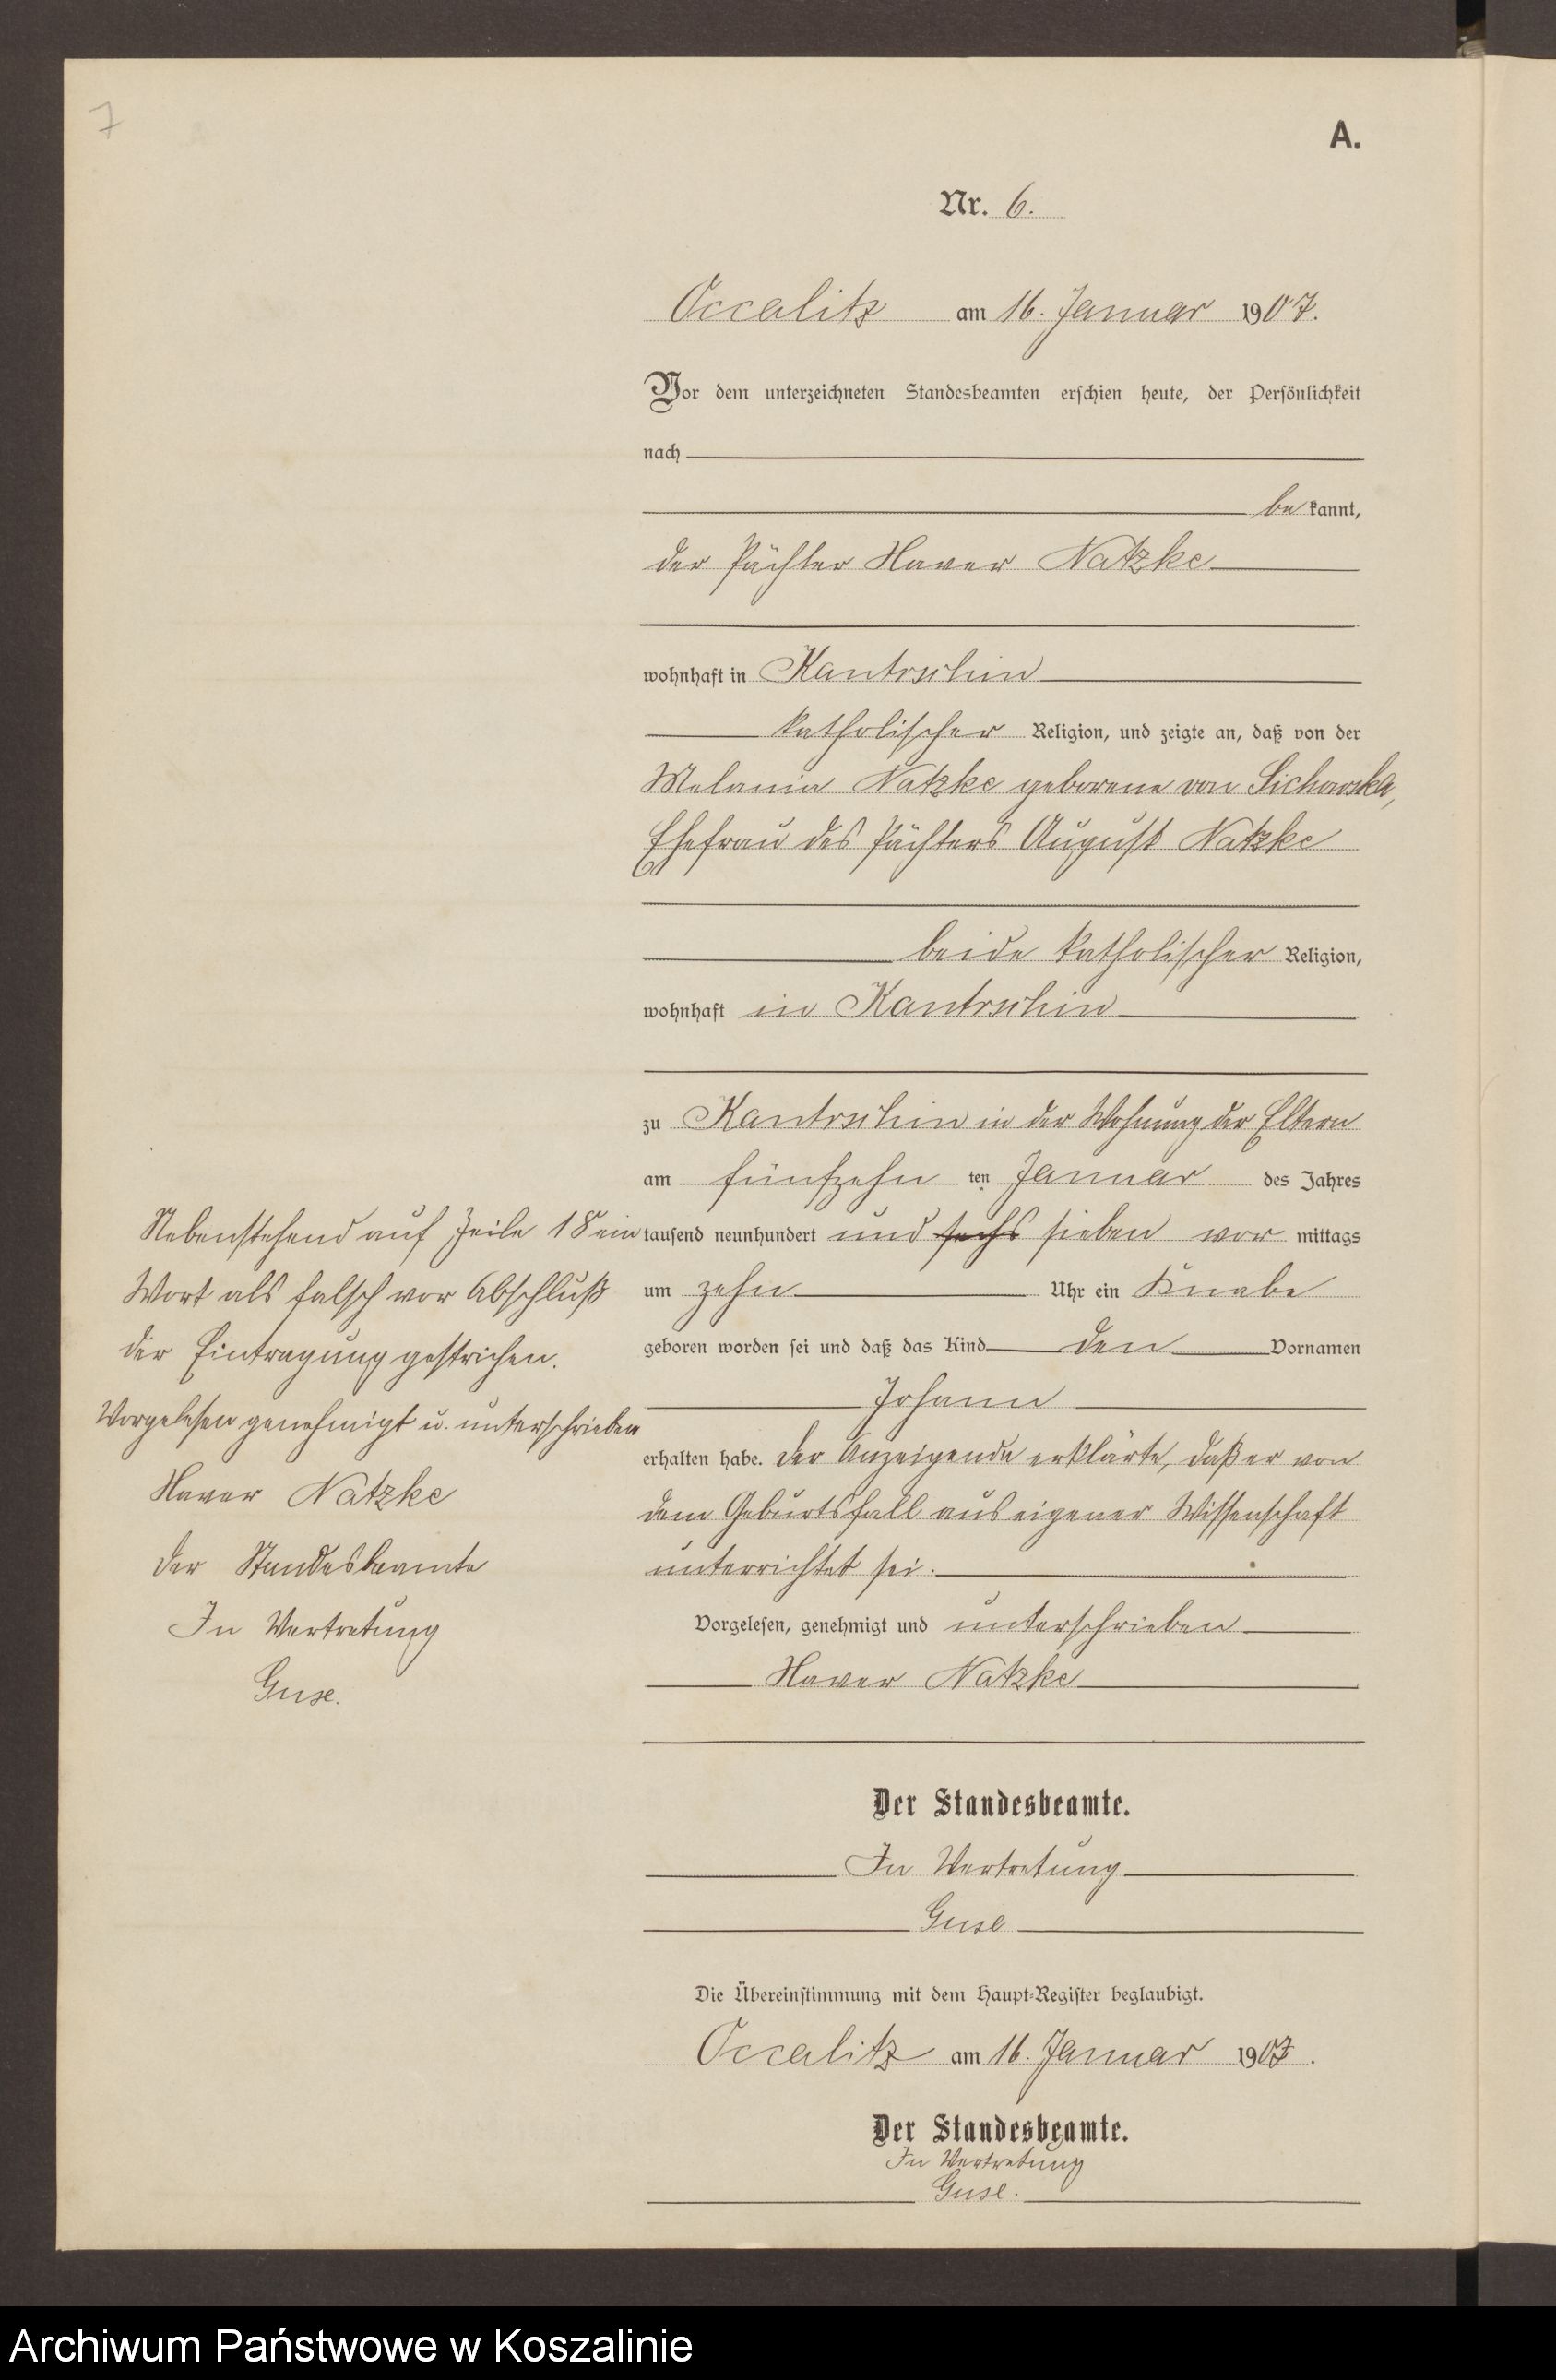 7
A.
Nr. 6.
Occalitz am 16. Januar 1907.
Vor dem unterzeichneten Standesbeamten erschien heute, der Persönlichkeit
nach
be kannt,
der Pächter Xaver Natzke
wohnhaft in Kantrschin
katholischer Religion, und zeigte an, daß von der
Melania Natzke geborene von Sichowska,
Ehefrau des Pächters August Natzke
beide katholischer Religion,
wohnhaft in Kantrschin
zu Kantrschin in der Wohnung der Eltern
am fünfzehn ten Januar des Jahres
tausend neunhundert und sechs sieben vor mittags
um zehn Uhr ein Knabe
geboren worden sei und daß das Kind den Vornamen
Johann
erhalten habe. Der Anzeigende erklärte, daß er von
dem Geburtsfall aus eigener Wissenschaft
unterrichtet sei.
Vorgelesen, genehmigt und unterschrieben
Xaver Natzke
Der Standesbeamte.
In Vertretung
Guse
Die Übereinstimmung mit dem Haupt-Register beglaubigt.
Occalitz am 16. Januar 1907.
Der Standesbeamte.
In Vertretung
Guse.
Nebenstehend auf Zeile 18 ein
Wort als falsch vor Abschluß
der Eintragung gestrichen.
Vorgelesen genehmigt u. unterschrieben
Xaver Natzke
Der Standesbeamte
In Vertretung
Guse.
Archiwum Państwowe w Koszalinie